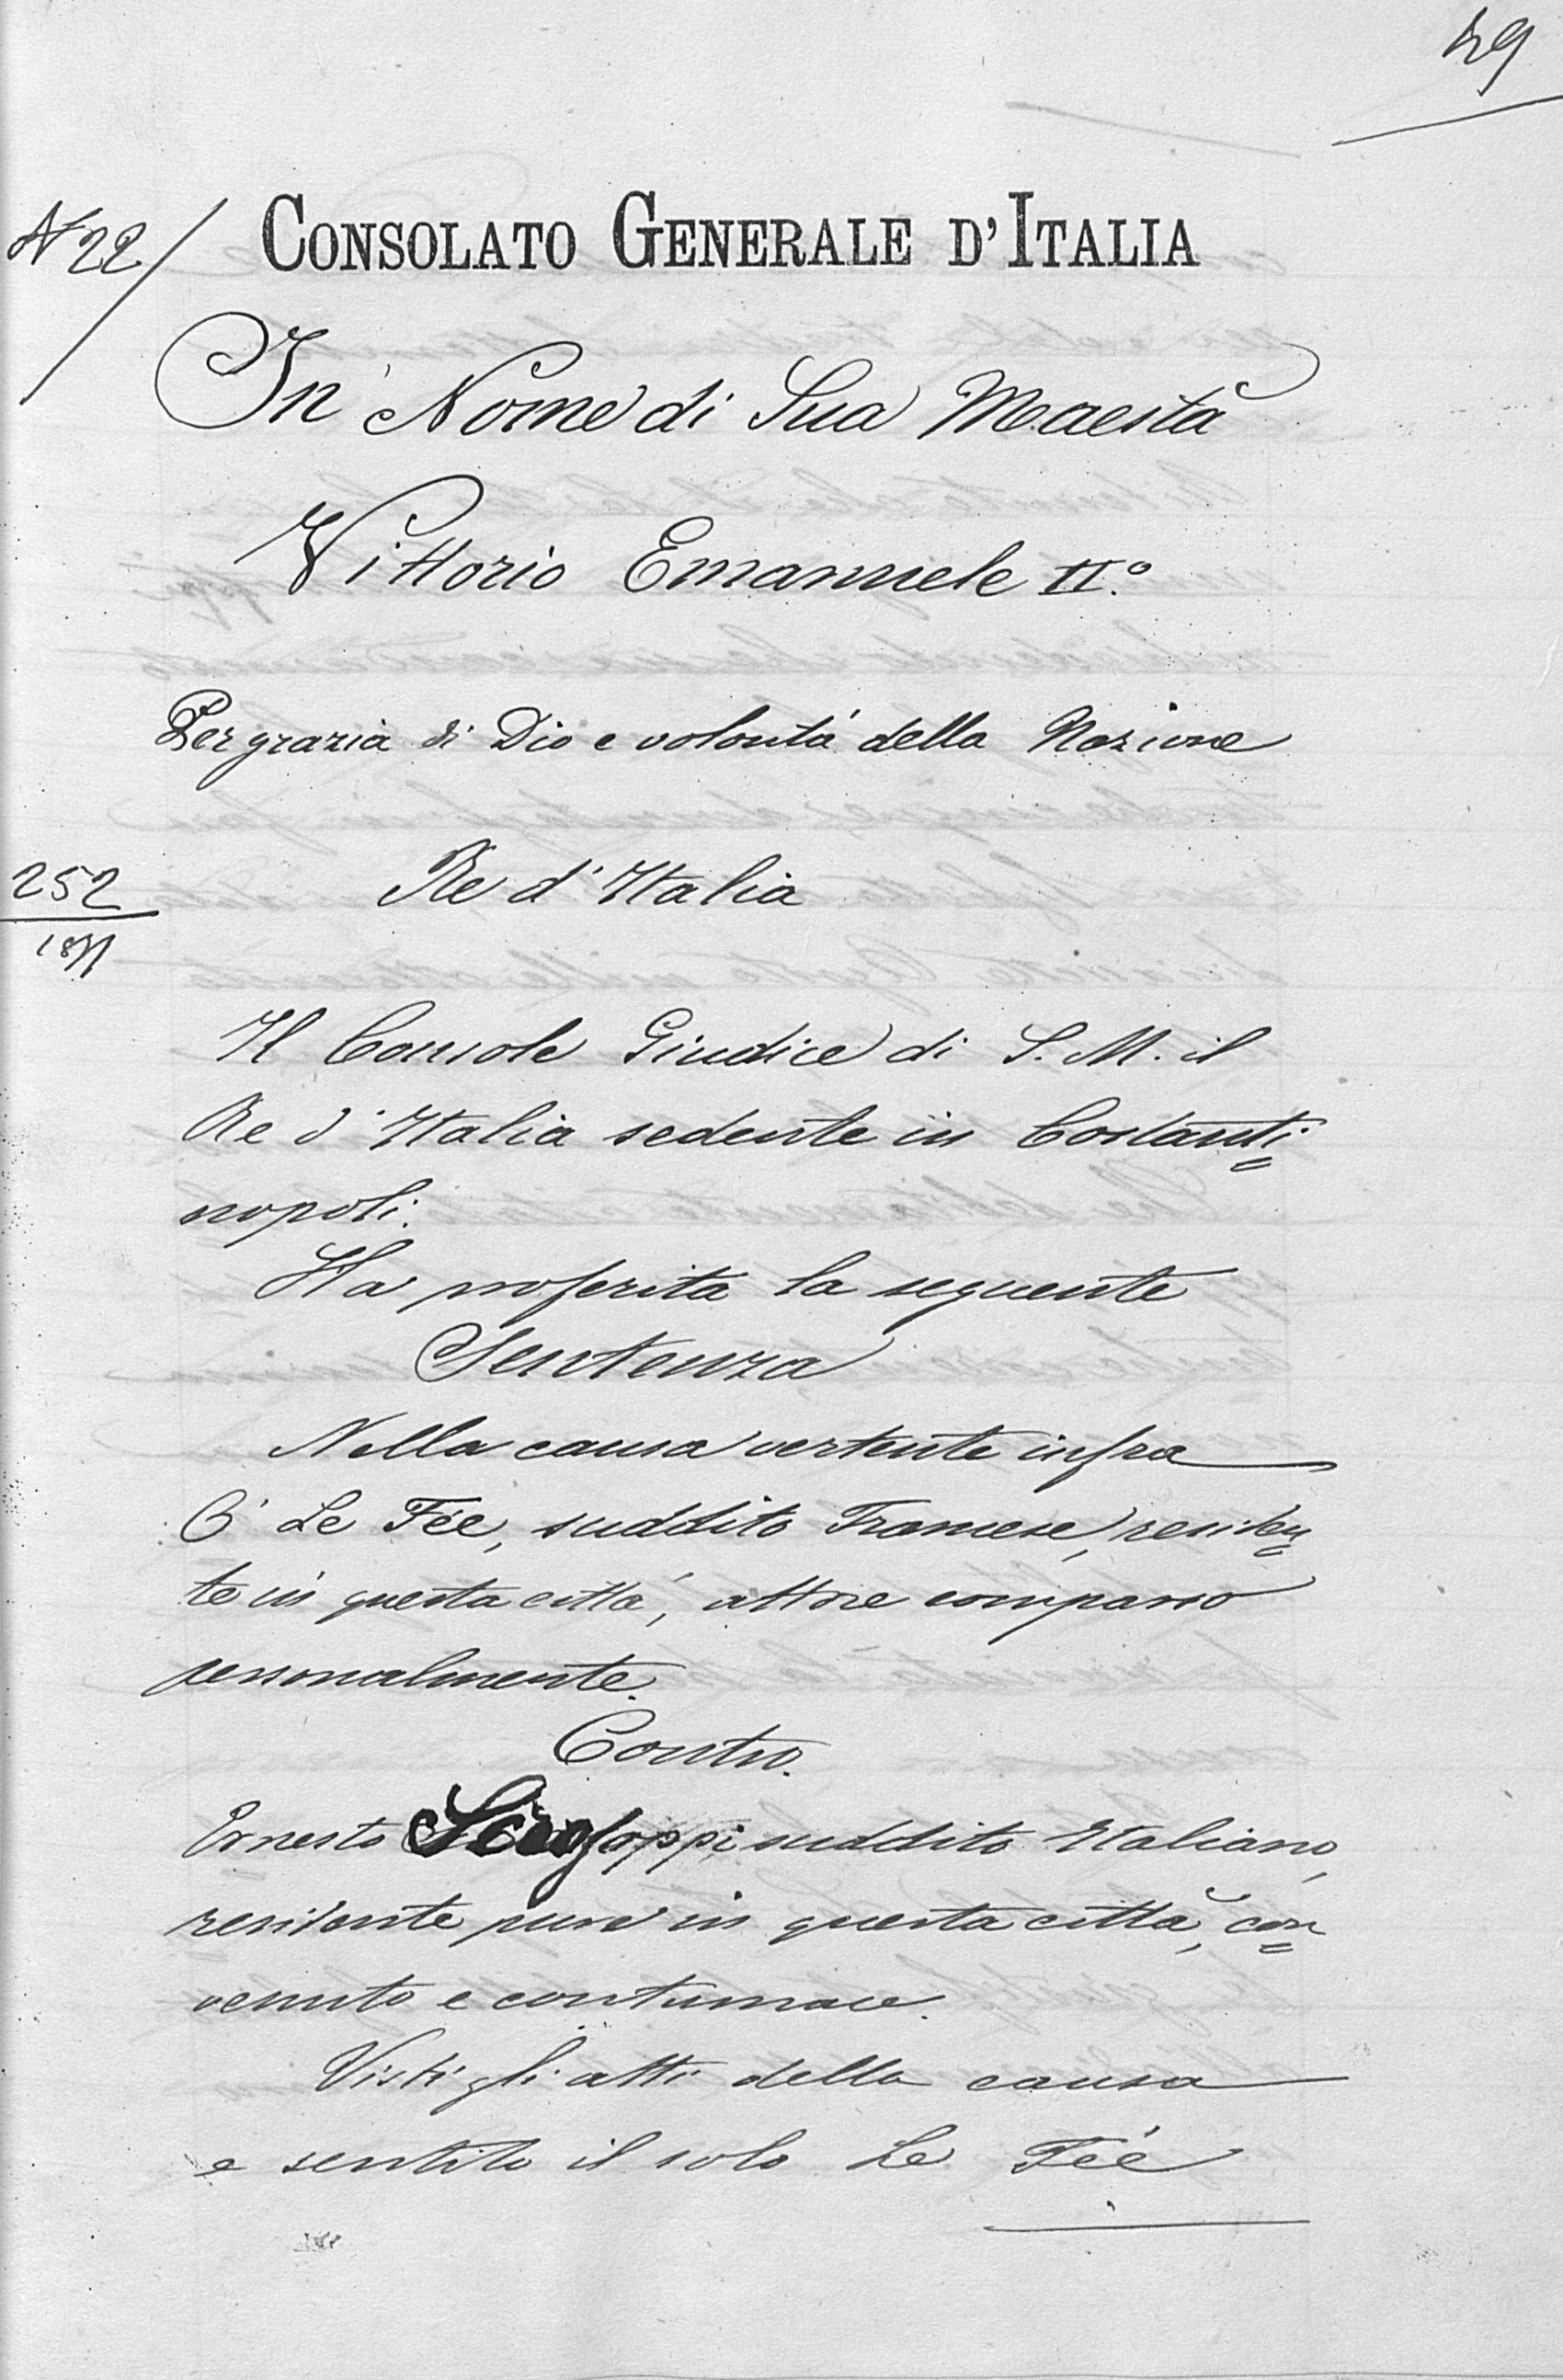 49
N 22
CONSOLATO GENERALE D'ITALIA
In Nome di Sua Maestà
Vittorio Emanuele II.°
Per grazia di Dio e volontà della Nazione
252
1871
Re d'Italia
Il Console Giudice di S. M. il
Re d'Italia sedente in Costanti=
nopoli.
Ha proferita la seguente
Sentenza
Nella causa vertente infra
C Le Fée, suddito Francese, residen=
te in questa città, attore comparso
personalmente.
Contro.
Ernesto suddito Italiano,
residente pure in questa città, con=
venuto e contumace.
Visti gli atti della causa
e sentito il solo Le Fée